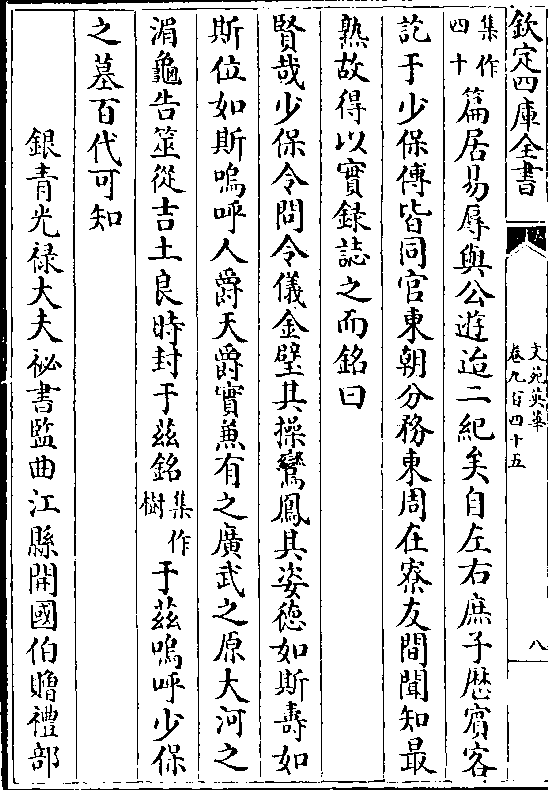 欽定四庫全書
文苑英華
卷九百四十五
八
集作四十篇居易辱與公遊迨二紀矣自左右庶子歷賓客
訖于少保傅皆同官東朝分務東周在寮友間聞知最
熟故得以實錄誌之而銘曰
賢哉少保令問令儀金璧其操鸞鳳其姿德如斯壽如
斯位如斯嗚呼人爵天爵實兼有之廣武之原大河之
湄龜告筮從吉土良時封于兹銘集作樹于兹嗚呼少保
之墓百代可知
銀青光禄大夫祕書監曲江縣開國伯贈禮部